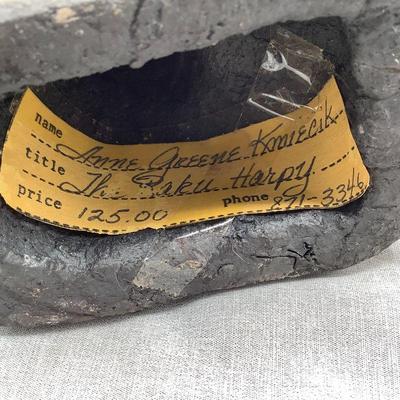 name Anne Greene Kmiecik
title The Raku Harpy
price 125.00 phone 871-3346